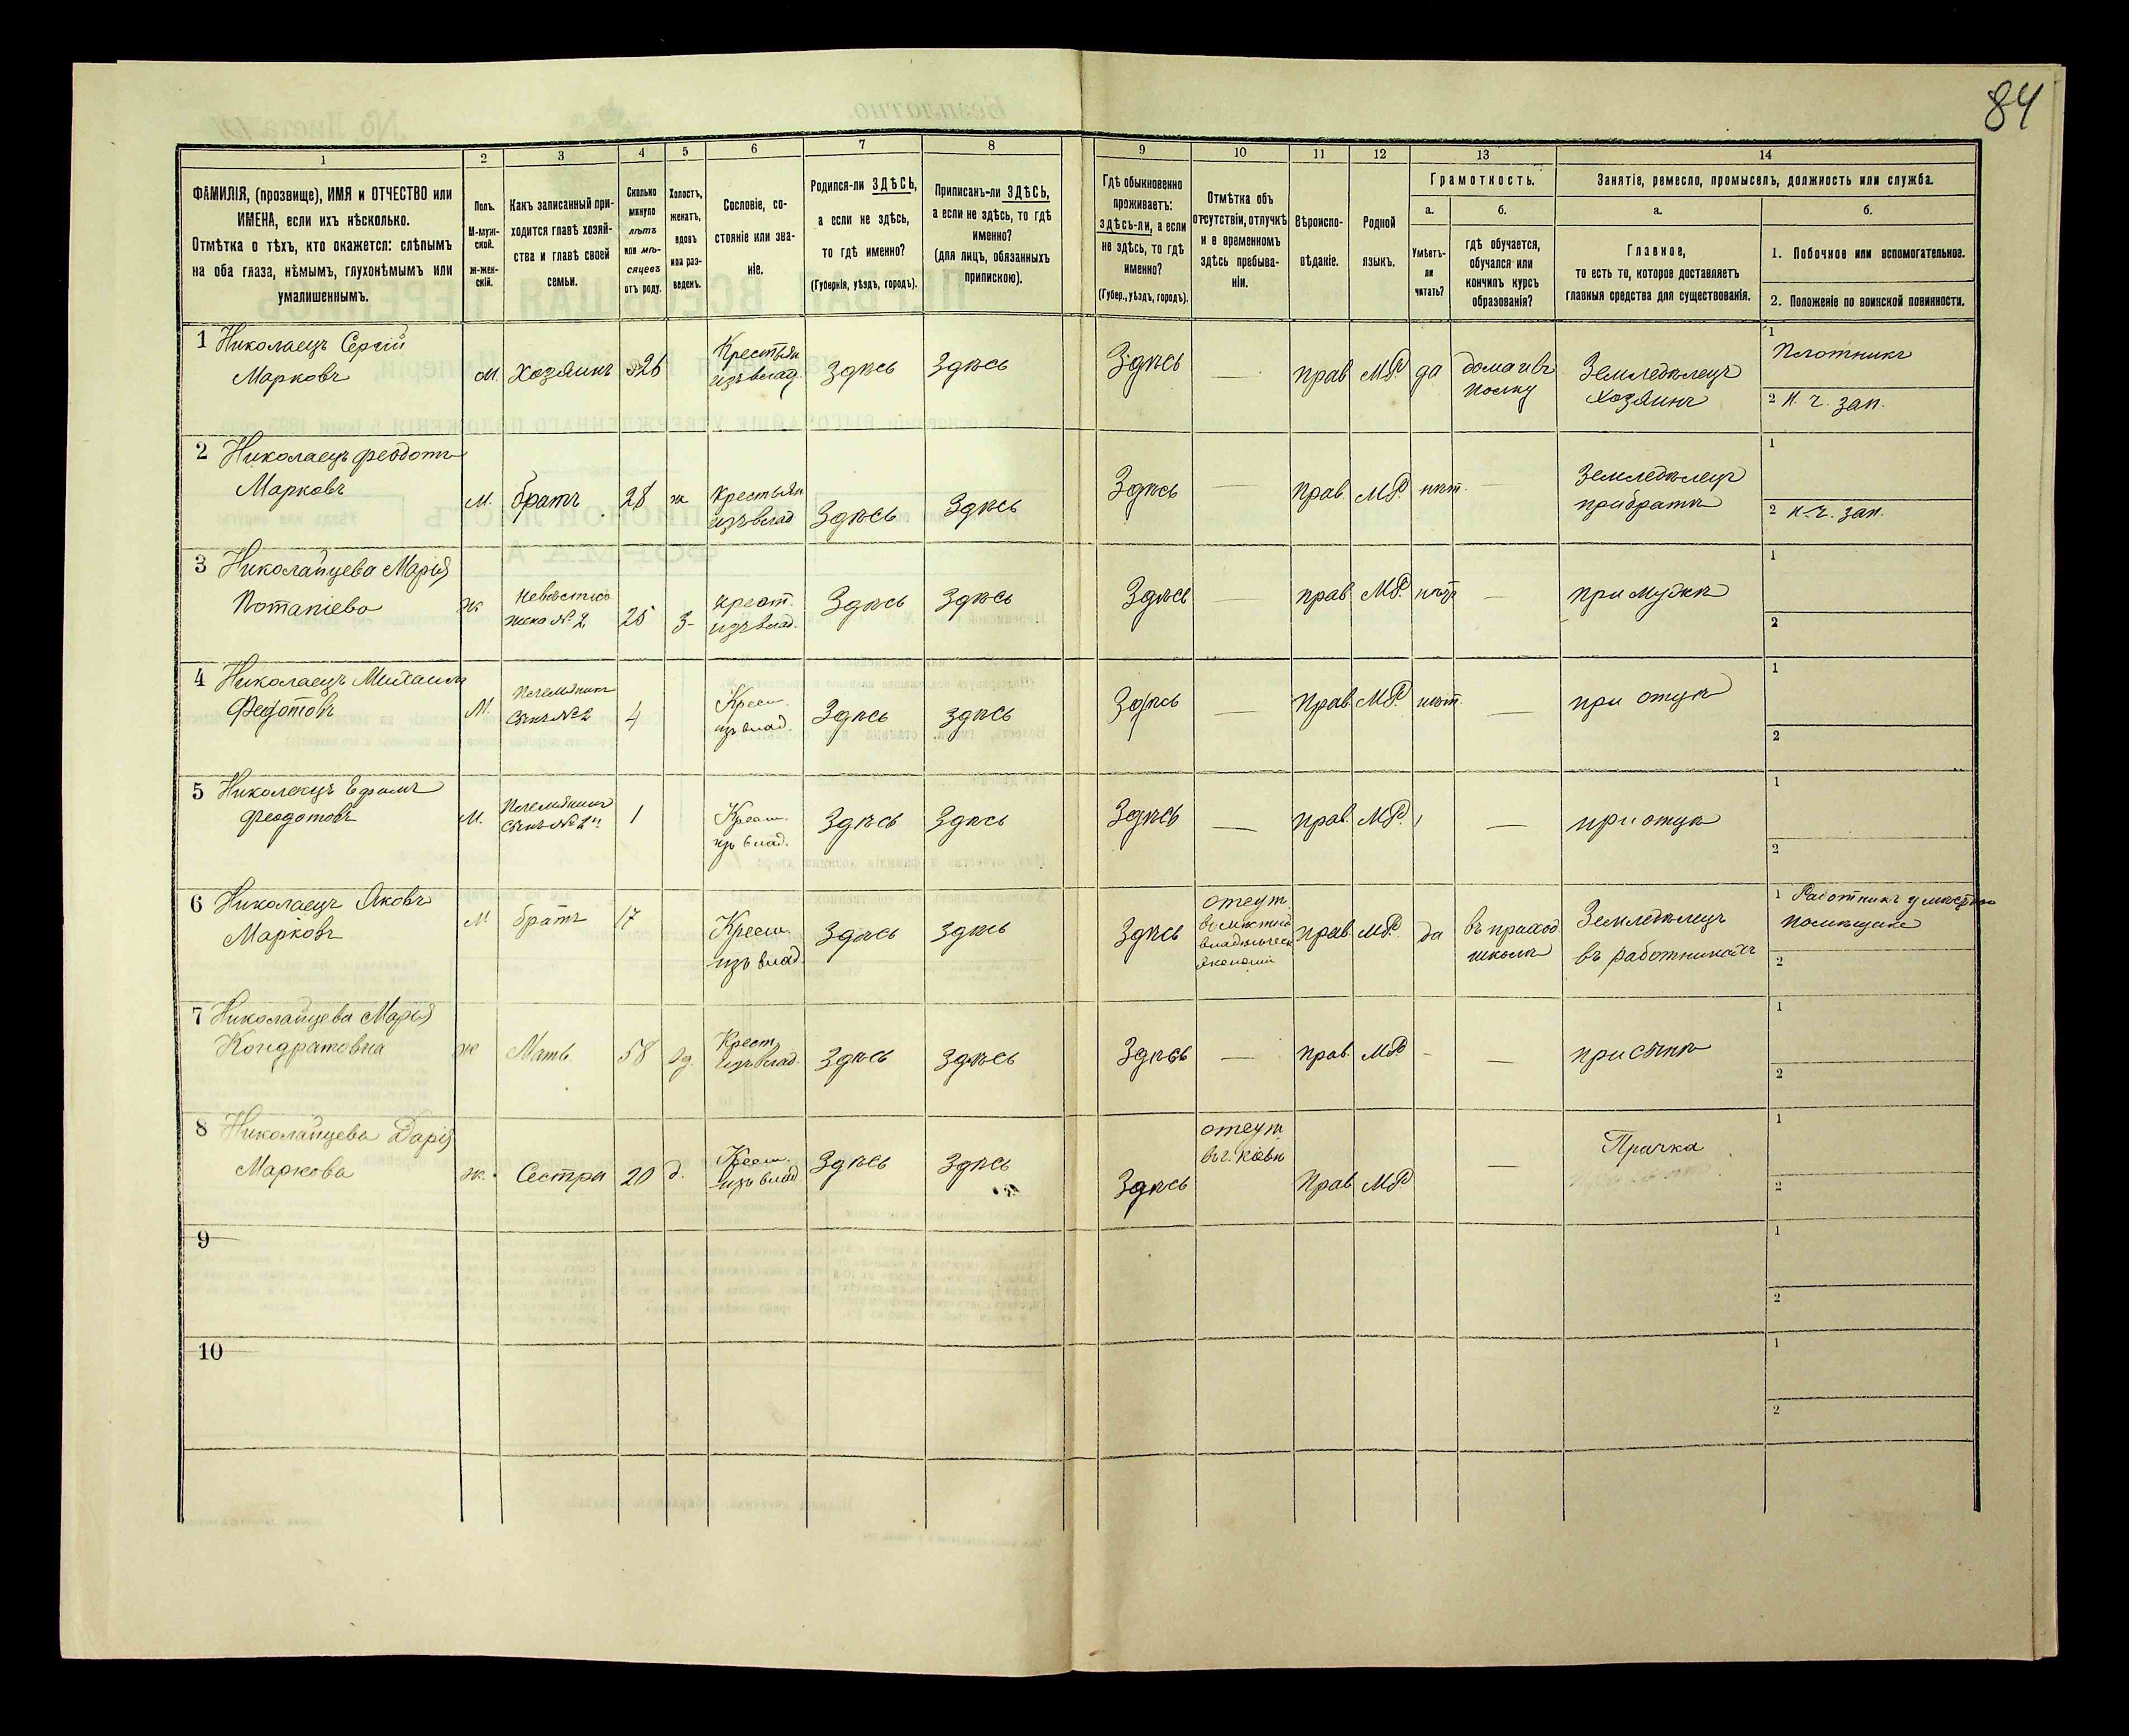 84
1 2 3 4 5 6 7 8 9 10 11 12 13 14
ФАМИЛІЯ, (прозвище), ИМЯ и ОТЧЕСТВО или
ИМЕНА, если ихъ нѣсколько.
Отмѣтка о тѣхъ, кто окажется: слѣпымъ
на оба глаза, нѣмымъ, глухонѣмымъ или
умалишеннымъ.
Полъ.
М-муж-
ской.
ж-жен-
скій.
Какъ записанный при-
ходится главѣ хозяй-
ства и главѣ своей
семьи.
Сколько
минуло
лѣтъ
или мѣ-
сяцевъ
отъ роду.
Холостъ,
женатъ,
вдовъ
или раз-
веденъ.
Сословіе, со-
стояніе или зва-
ніе.
Родился-ли ЗДѢСЬ,
а если не здѣсь,
то гдѣ именно?
(Губернія, уѣздъ, городъ).
Приписанъ-ли ЗДѢСЬ,
а если не здѣсь, то гдѣ
именно?
(для лицъ, обязанныхъ
припискою).
Гдѣ обыкновенно
проживаетъ:
здѣсь-ли, а если
не здѣсь, то гдѣ
именно?
(Губер., уѣздъ, городъ).
Отмѣтка объ
отсутствіи, отлучкѣ
и о временномъ
здѣсь пребыва-
ніи.
Вѣроиспо-
вѣданіе.
Родной
языкъ.
Грамотность.
а.
Умѣетъ-
ли
читать?
б.
гдѣ обучается,
обучался или
кончилъ курсъ
образованія?
Занятіе, ремесло, промыселъ, должность или служба.
а.
Главное,
то есть то, которое доставляетъ
главныя средства для существованія.
б.
1. Побочное или вспомогательное.
2. Положеніе по воинской повинности.
1 Николаецъ Сергій
Марковъ
м. Хозяинъ 26
Крестьян
изъ влад.
Здѣсь Здѣсь Здѣсь — прав М.Р. да
дома и въ
полку
Земледѣлецъ
Хозяинъ
1 Плотникъ
2 Н. Ч. зап.
2 Николаецъ Феодотъ
Марковъ
м. братъ 28 ж
Крестьян
изъ влад
Здѣсь Здѣсь Здѣсь — прав. М.Р. нѣт. —
Земледѣлецъ
при братѣ
1
2 Н. Ч. зап.
3 Николайцева Марья
Потапіева
ж.
Невѣстка
жена № 2
25 З-
крест.
изъ влад.
Здѣсь Здѣсь Здѣсь — прав М.Р. нѣт —
при мужѣ
1
2
4 Николаецъ Михаилъ
Федотовъ
М.
Племянникъ
сынъ № 2
4
Крест.
изъ влад.
Здѣсь здѣсь Здѣсь — Прав М.Р. нѣт. —
при отцѣ
1
2
5 Николаецъ Ефимъ
Феодотовъ
м.
Племянникъ
сынъ № 2
1
Крест.
изъ влад.
Здѣсь Здѣсь Здѣсь — прав. М.Р. —
при отцѣ
1
2
6 Николаецъ Яковъ
Марковъ
м братъ 17
Крест.
изъ влад.
Здѣсь здѣсь Здѣсь
отсут.
прав. М.Р. да
въ приход
школѣ
Земледѣлецъ
въ работникахъ
1 Работникъ у
помѣщика
2
7 Николайцева Марья
Кондратовна
ж Мать 58 вд.
Крест.
изъ влад.
Здѣсь здѣсь Здѣсь — прав. М.Р. - —
при сынѣ
1
2
8 Николайцева Дарія
Маркова
ж. Сестра 20 д.
Крест.
изъ влад
Здѣсь Здѣсь Здѣсь
отсут
въ г. Кіевѣ
Прав М.Р. —
Прачка
1
2
9
1
2
10
1
2